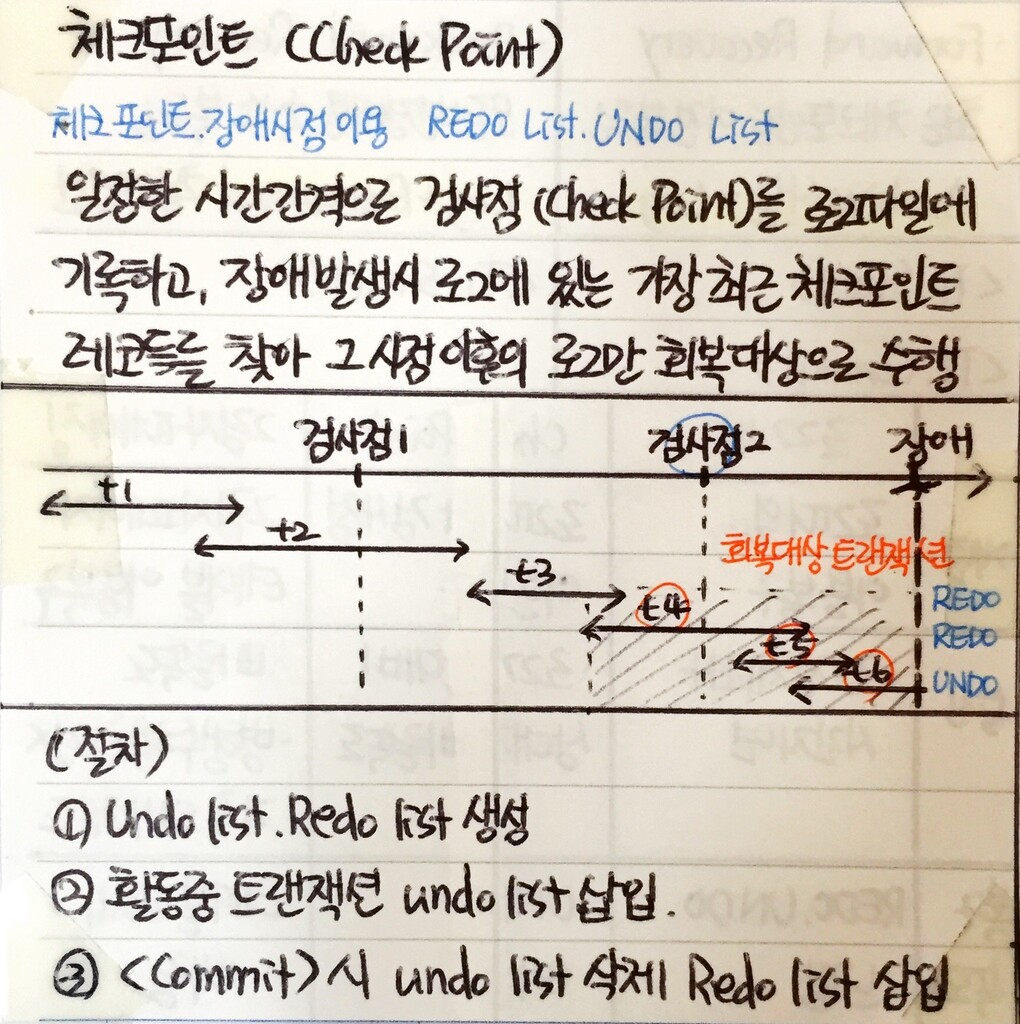 체크포인트 (Check Point)
체크포인트.장애시점 이용 REDO List.UNDO List
일정한 시간간격으로 검사점 (Check Point)를 로그파일에
기록하고, 장애발생시 로그에 있는 가장 최근 체크포인트
레코드들을 찾아 그 시점 이후의 로그만 회복대상으로 수행
검사점1 검사점2 장애
t1
t2
회복대상 트랜잭션
t3
t4 REDO
t5 REDO
t6 UNDO
(절차)
① Undo list.Redo list 생성
② 활동중 트랜잭션 undo list 삽입.
③ <Commit> 시 undo list 삭제 Redo list 삽입